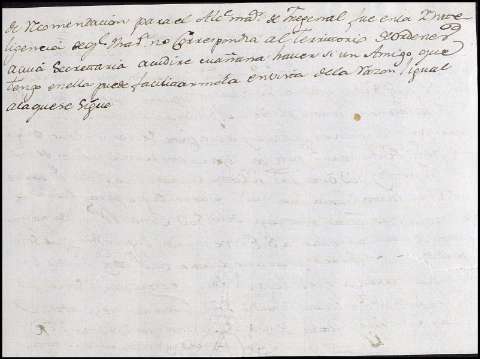 de Recomendacion para el Alc.e may.r de Fregenal, fue en la Inte-
ligencia de q.e no Correspondia al Territorio de Ordenes
a cuia Secretaria acudire mañana haver si un Amigo que
tengo en ella puede facilitarmela en vista de la razon, igual
a la que se sigue